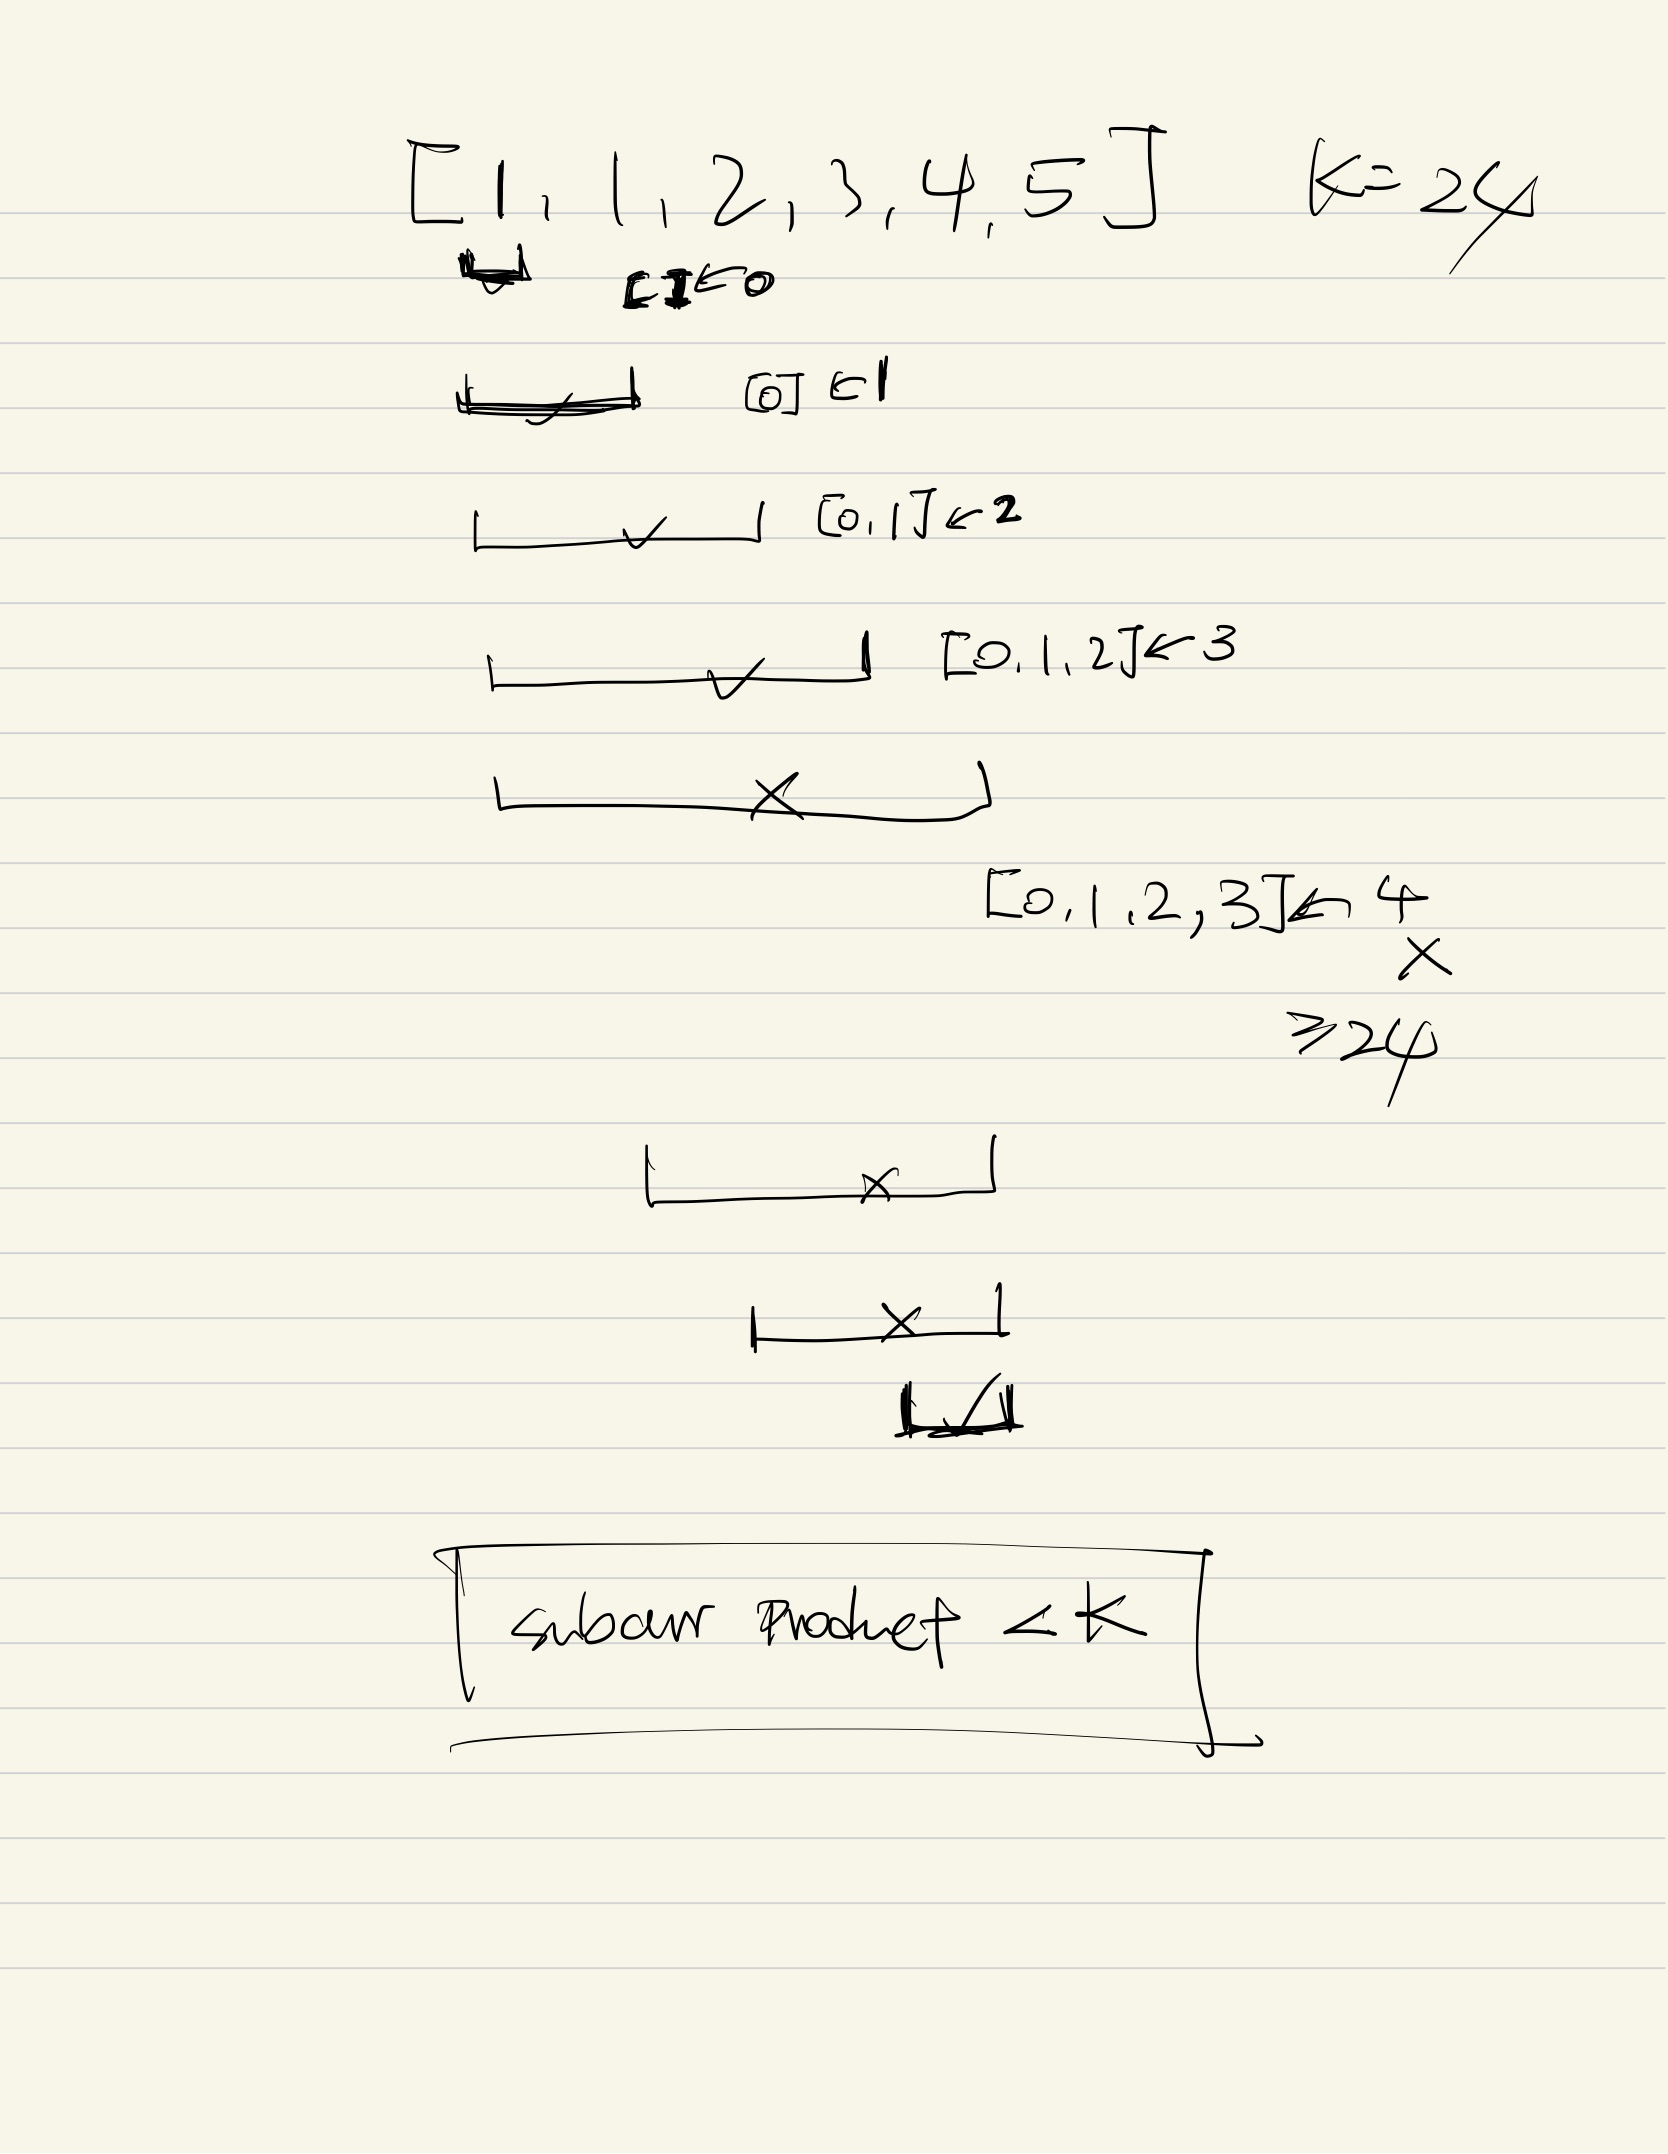 [1, 1, 2, 3, 4, 5] K=24
[ ] ← 0
[0] ← 1
[0, 1] ← 2
[0, 1, 2] ← 3
[0, 1, 2, 3] ← 4
≥24
subarr product < K